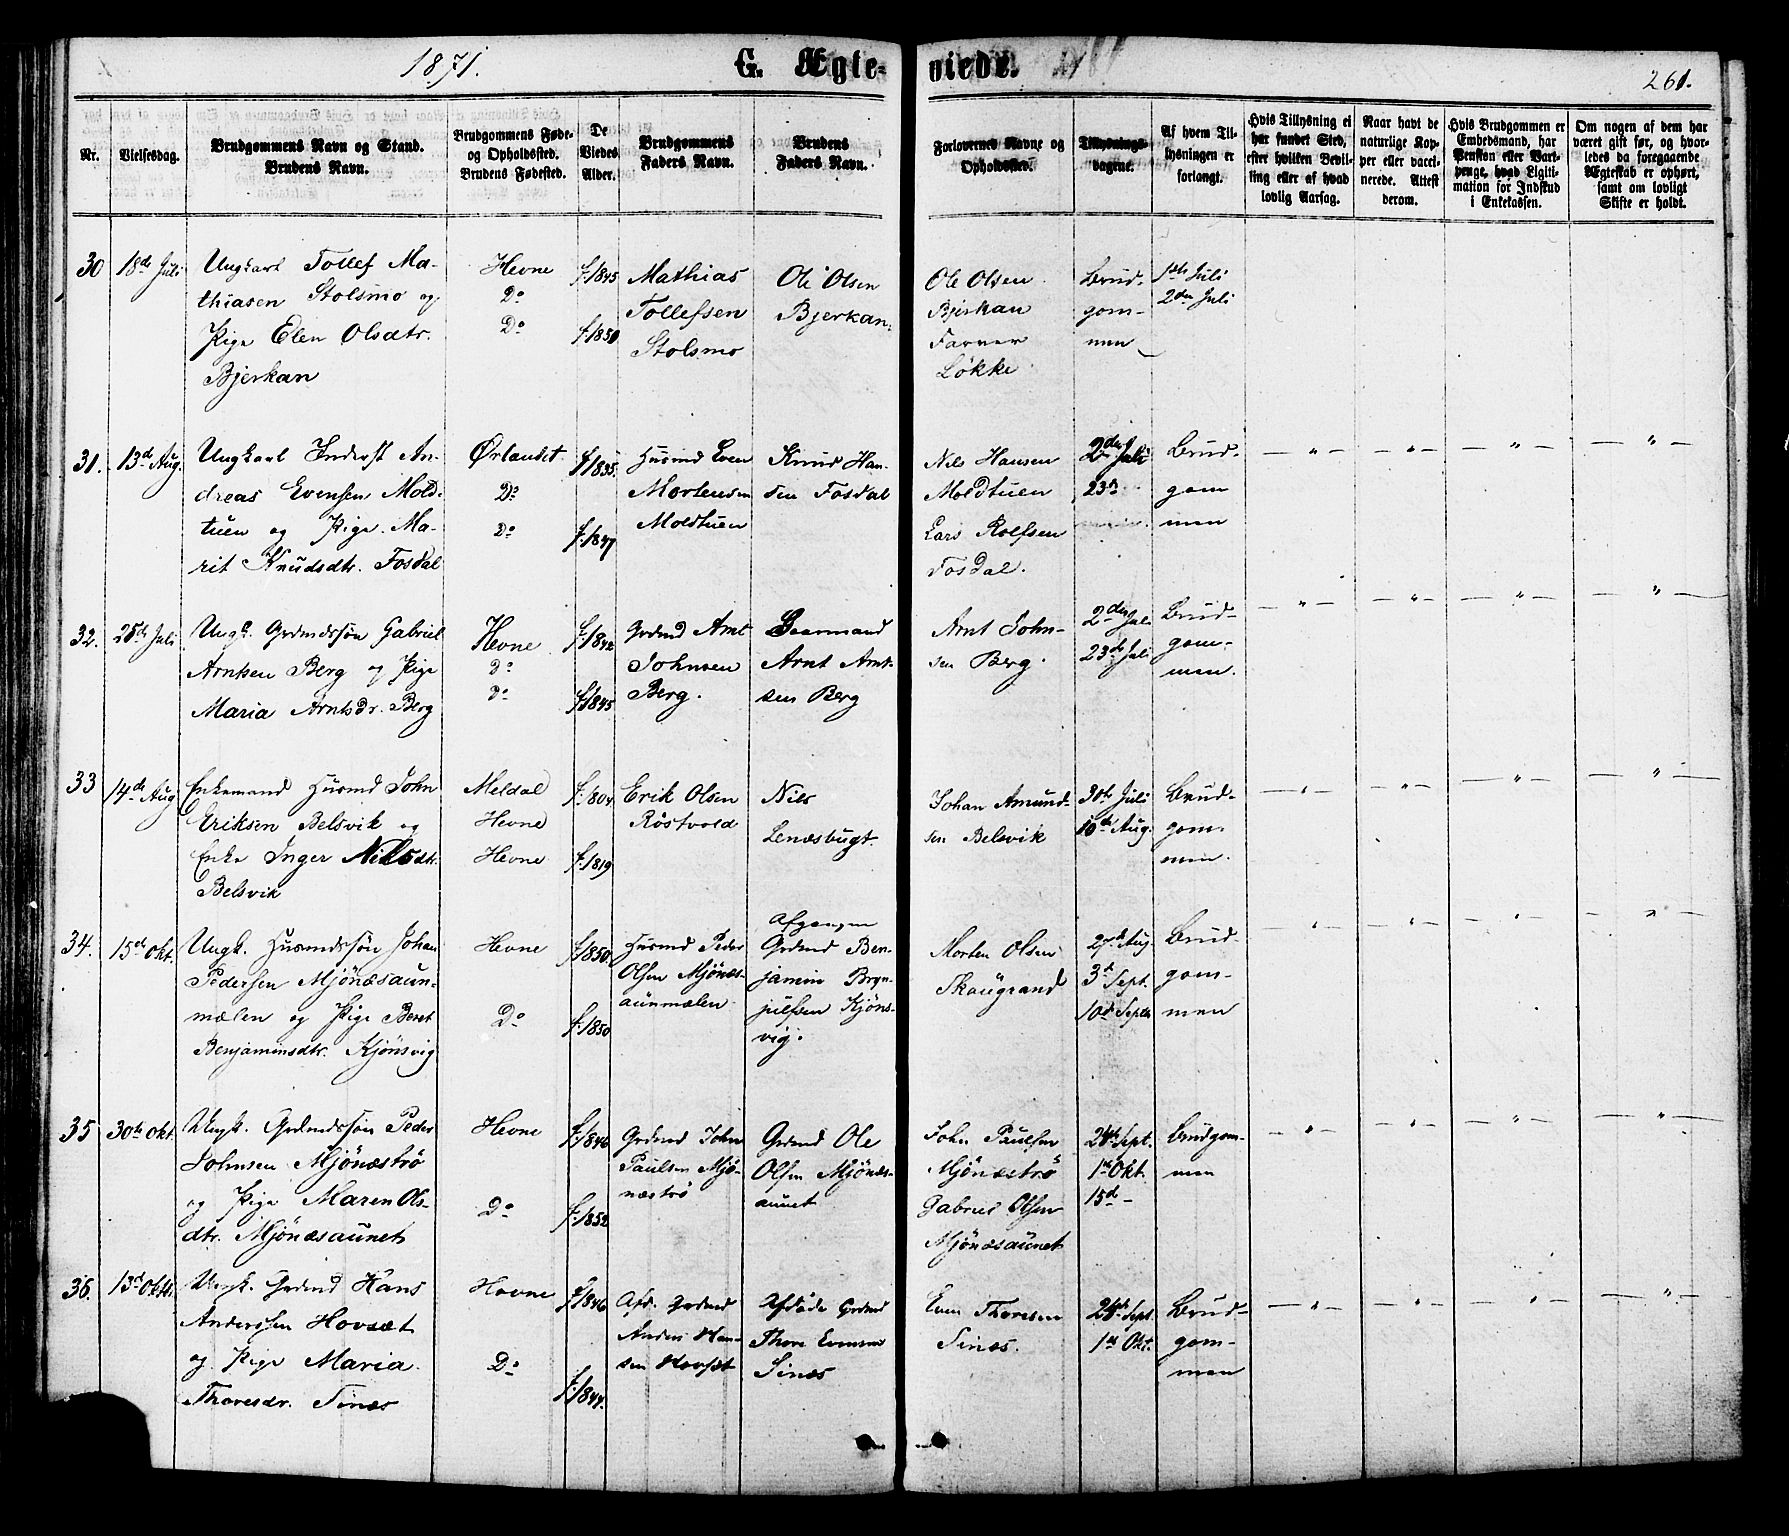 1871.
G. Ægte-
viede.
261.
Nr.
Vielsesdag.
Brudgommens Navn og Stand.
Brudens Navn.
Brudgommens Føde-
og Opholdssted.
Brudens Fødested.
De
Viedes
Alder.
Brudgommens
Faders Navn.
Brudens
Faders Navn.
Forlovernes Navne og
Opholdssted.
Tillysnings-
dagene.
Af hvem Til-
lysningen er
forlangt.
Hvis Tillysning ei
har fundet Sted,
efter hvilken Bevil-
ling eller af hvad
lovlig Aarsag.
Naar havt de
naturlige Kop-
per eller vacci-
nerede. Attest
derom.
Hvis Brudgommen er
Embedsmand, har
Pension eller Vart-
penge, hvad Ligiti-
mation for Indskud
i Enkekassen.
Om nogen af dem har
været gift før, og hvor-
ledes da foregaaende
Ægteskab er ophørt,
samt om lovligt
Skifte er holdt.
30
18de Juli
Ungkarl Tollef Ma-
thiasen Stolsmo og
Pige Elen Olsdtr.
Bjerkan
Hevne
Do
Do
f. 1845
f. 1850
Mathias
Tollefsen
Stolsmo
Ole Olsen
Bjerkan
Ole Olsen
Bjerkan
Løkke
Brud-
gom-
men
2den Juli
31.
13de Aug.
Ungkarl Inderst An-
dreas Evensen Mold-
tuen og Pige Ma-
rit Knudsdtr. Fosdal
Ørlandet
Do
Do
f. 1835
f. 1847
Husmd Even
Mortensen
Moldtuen
Knud Han-
sen Fosdal
Nils Hansen
Moldtuen
Lars Rolfsen
Fosdal.
2den Juli
23de
Brud-
gom
men
— " — — " — — " — — " —
32.
25de Juli
Ungk. Grdmdssøn Gabriel
Arntsen Berg og Pige
Maria Arntsdr. Berg
Hevne
Do
Do
f. 1842
f. 1845
Grdmd Arnt
Johnsen
Berg.
Gaarmand
Arnt Arnt-
sen Berg
Arnt John-
sen Berg.
2den Juli
23de Juli
Brud-
gom-
men.
— " — — " — — " — — " —
33
14de Aug
Enkemand Husmd John
Eriksen Belsvik og
Enke Inger Nilsdtr.
Belsvik
Meldal
Hevne
Hevne
f. 1804
f. 1819
Erik Olsen
Röstvold
Nils
Lenæsbugt
Johan Amund-
sen Belsvik
30te Juli
Aug.
Brud-
gom-
men.
— " — — " — — " — — " —
34.
15de Okt.
Ungk. Husmdssøn Johan
Pedersen Mjönæsaun-
mælen og Pige Beret
Benjaminsdtr. Kjönsvig
Hevne
Do
f. 1850
f. 1850
Husmd Peder
Olsen Mjönæs-
aunmælen
Afgangen
Grdmd Ben-
jamin Bryn-
julfsen Kjöns-
vig.
Morten Olsen
Skaugrand
27de Aug.
3de Sept.
10de Septr
Brud-
gom-
men
— " — — " — — " — — " —
35
30te Okt.
Ungk. Grdmdssön Peder
Johnsen Mjönæströ
og Pige Maren Ols-
dtr. Mjönæsaunet
Hevne
Do
f. 1846
f. 1852
Grdmd John
Paulsen Mjö-
næströ
Grdmd Ole
Olsen Mjönæs-
aunet
John Paulsen
Mjönæströ
Gabriel Olsen
Mjönæsaunet
24de Sept.
1ste Okt.
15de —
Brudgom-
men
— " — — " — — " — — " —
36.
13de Oktb.
Ungk. Grdmd Hans
Anderssen Hovsæt
og Pige Maria
Thoresdr. Sinæs
Hevne
Do
f. 1846
f. 1844.
Afd. Grdmd
Anders Han-
sen Hovsæt
Afdöde Grdmd
Thore Evensen
Sinæs
Even Thoresen
Sinæs.
24de Sept.
1ste Okt.
Brud-
gom-
men
— " — — " — — " — — " —